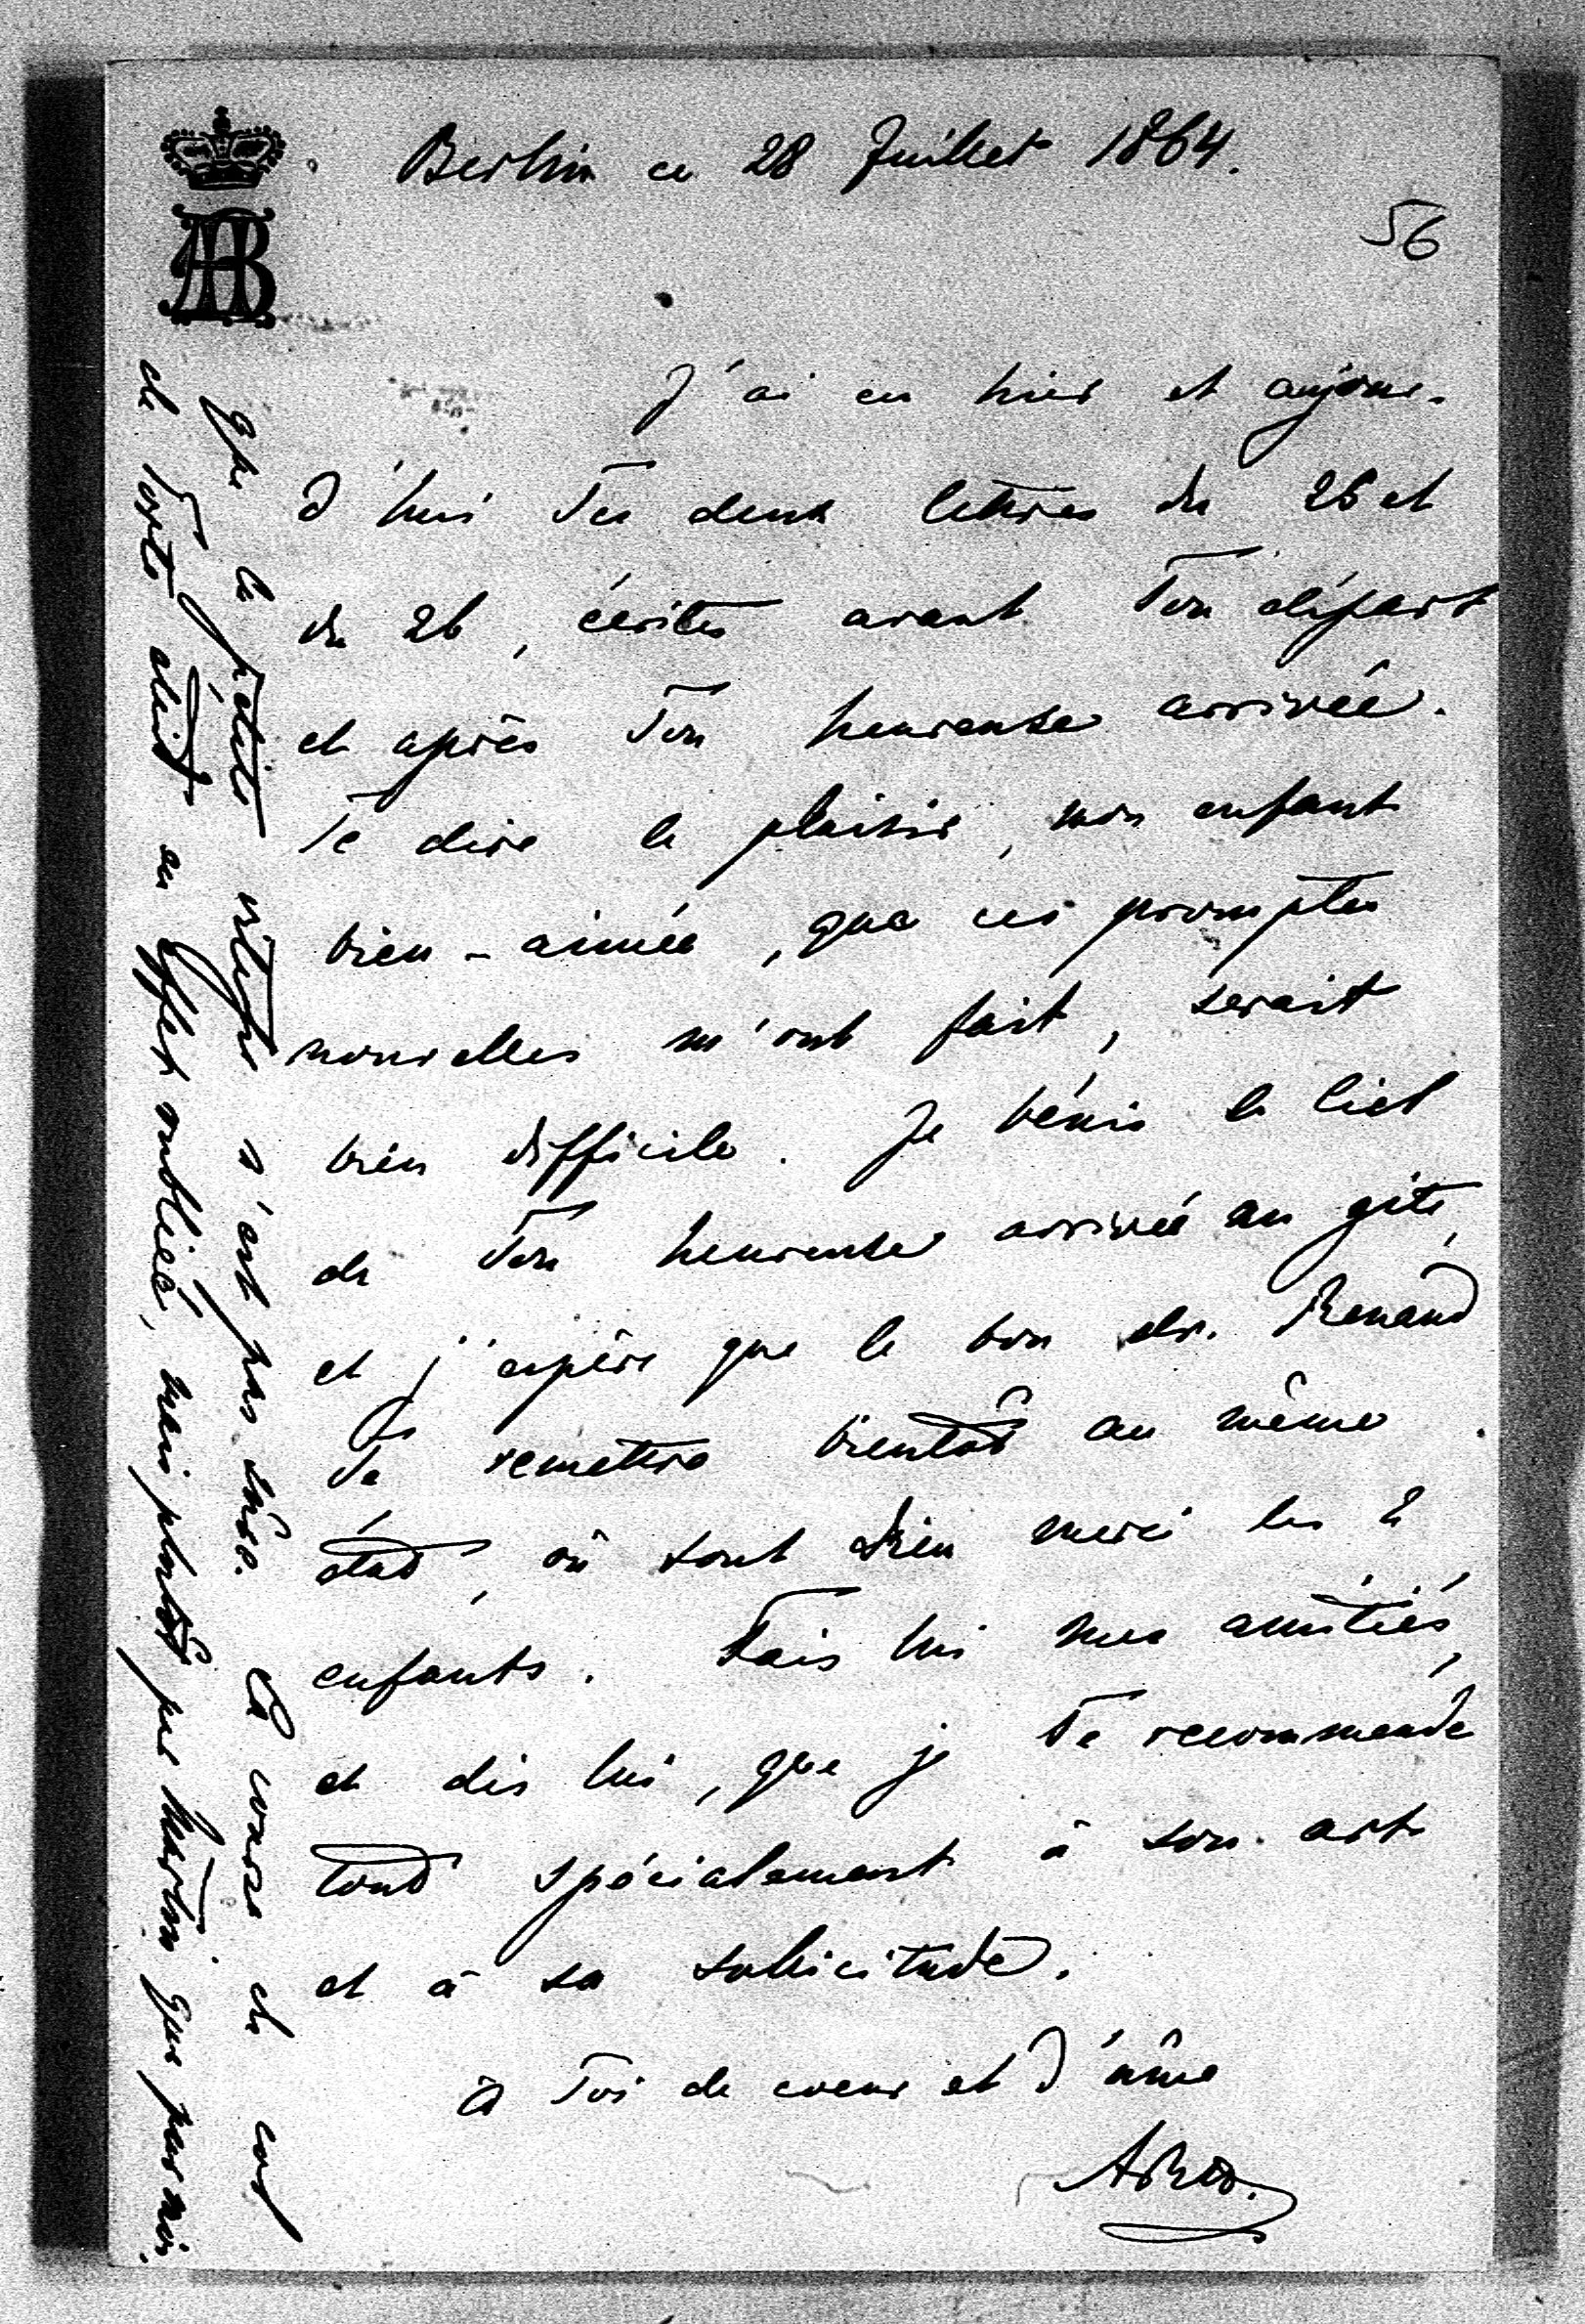 Berlin ce 28 Juillet 1864.
56
J'ai eu hier et aujour-
d'hui Tes deux lettres du 26 et
du 26, écrites avant Ton départ
et après Ton heureuse arrivée.
Te dire le plaisir, mon enfant
bien-aimée, que ces promptes
nouvelles m'ont fait, serait
bien difficile. Je bénis le Ciel
de Ton heureuse arrivée au gîte,
et j'espère que le bon dr. Renaud
Te remettra bientôt au même
état, où sont Dieu merci les 2
enfants. Fais lui mes amitiés,
et dis lui, que je Te recommande
tout spécialement à son art
et à sa sollicitude.
à Toi de coeur et d'âme
que la petite n'est pas
de était en effet oubliée, mais plutôt par Martin que par moi.